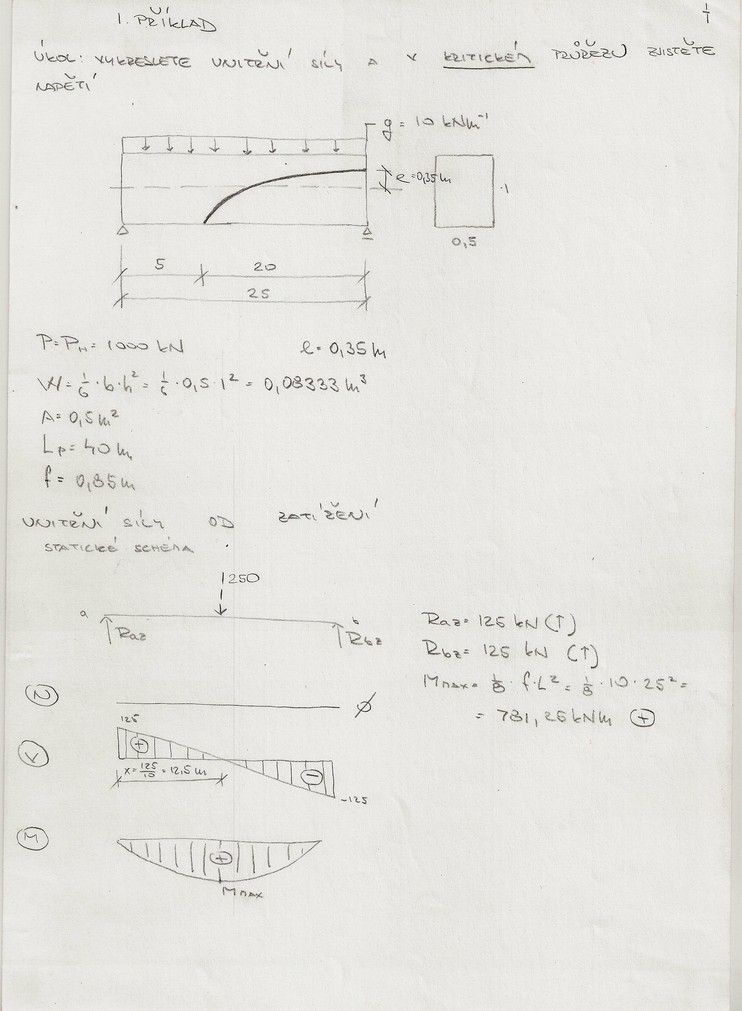 1. PŘÍKLAD
1/1
ÚKOL: VYKRESLETE VNITŘNÍ SÍLY A V KRITICKÉM PRŮŘEZU ZJISTĚTE
NAPĚTÍ
g = 10 kNm⁻¹
e = 0,35 m
1
0,5
5 20
25
P = Pm = 1000 kN e = 0,35 m
W = 1/6 · b · h² = 1/6 · 0,5 · 1² = 0,08333 m³
A = 0,5 m²
Lp = 40 m
f = 0,85 m
VNITŘNÍ SÍLY OD ZATÍŽENÍ
STATICKÉ SCHÉMA
250
a b
Raz Rbz
Raz = 125 kN (↑)
Rbz = 125 kN (↑)
Mmax = 1/8 · f · L² = 1/8 · 10 · 25² =
= 781,25 kNm (+)
N
125
V
+
x = 125/10 = 12,5 m
−
-125
M
+
Mmax